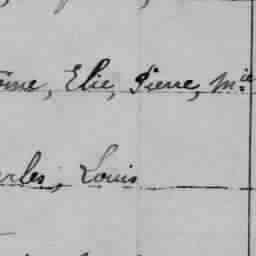 ôme, Elie, Pierre, M.ie
arles, Louis